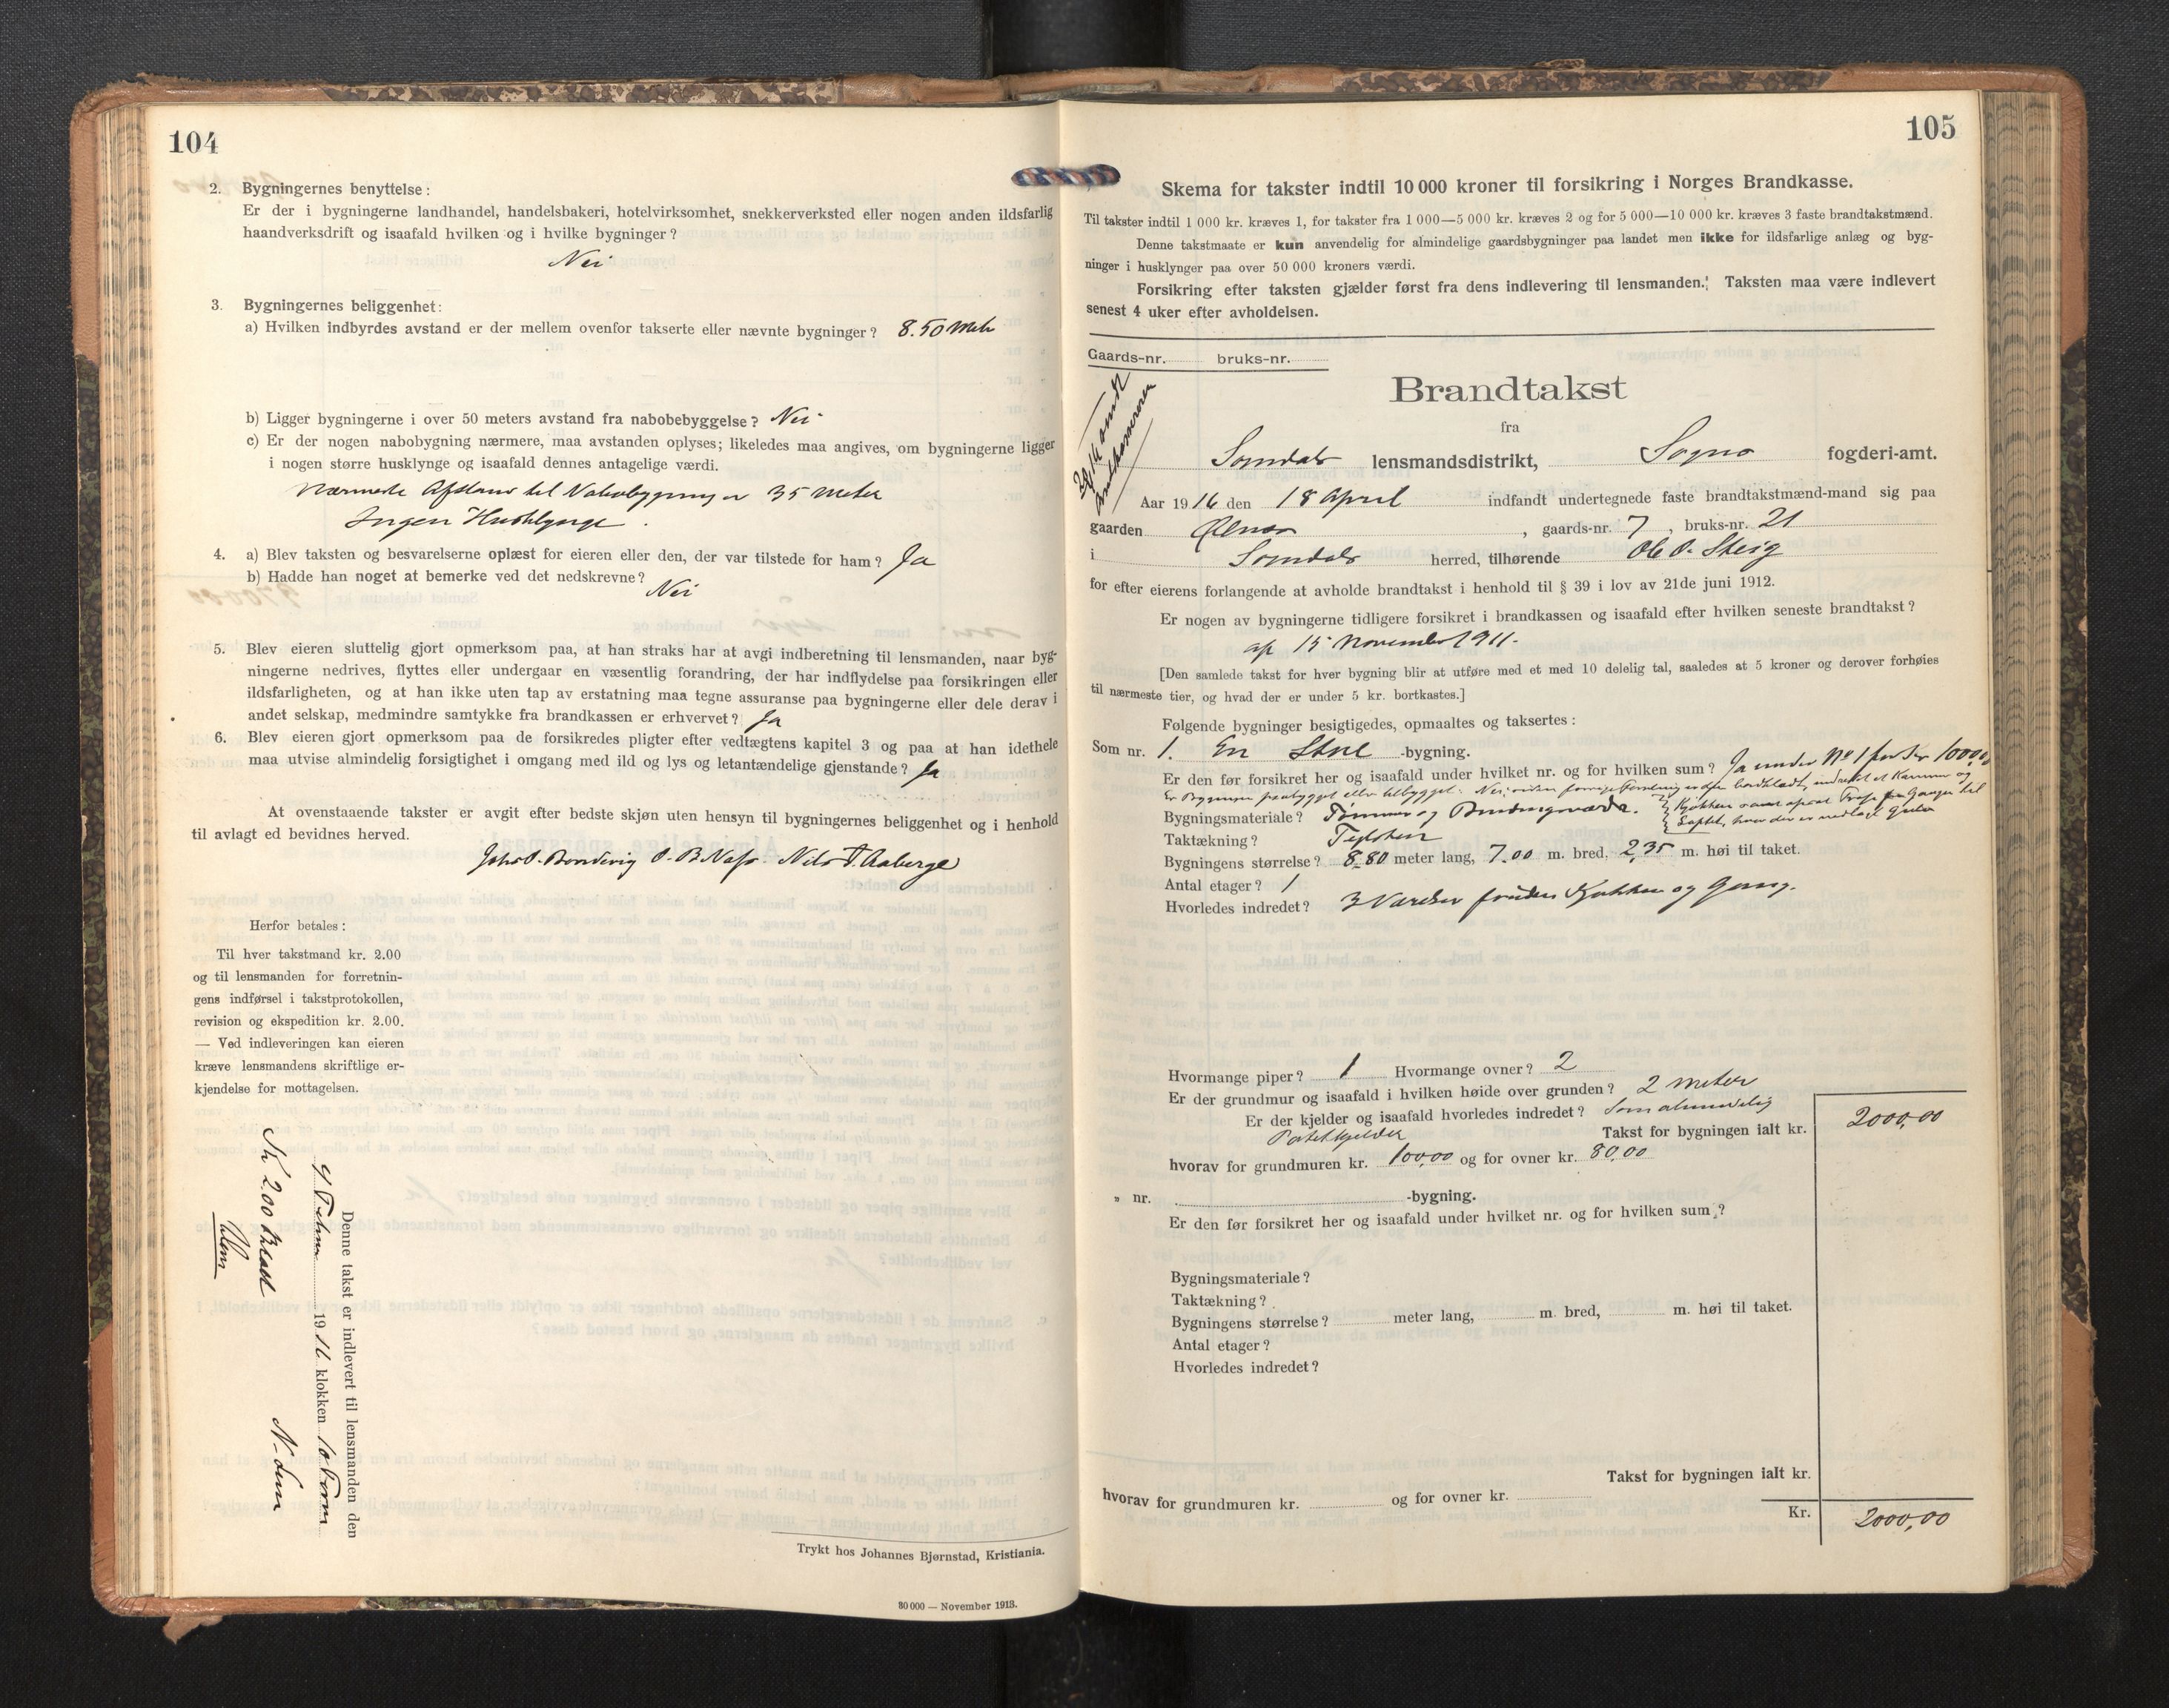 104
2. Bygningernes benyttelse:
Er der i bygningerne landhandel, handelsbakeri, hotelvirksomhet, snekkerverksted eller nogen anden ildsfarlig
haandverksdrift og isaafald hvilken og i hvilke bygninger?
Nei
3. Bygningernes beliggenhet:
a) Hvilken indbyrdes avstand er der mellem ovenfor takserte eller nævnte bygninger? 8.50 Meter
b) Ligger bygningerne i over 50 meters avstand fra nabobebyggelse? Nei
c) Er der nogen nabobygning nærmere, maa avstanden oplyses; likeledes maa angives, om bygningerne ligger
i nogen større husklynge og isaafald dennes antagelige værdi.
Nærmeste Afstand til Nabobygning er 35 Meter
Ingen Husklynge.
4. a) Blev taksten og besvarelserne oplæst for eieren eller den, der var tilstede for ham? Ja
b) Hadde han noget at bemerke ved det nedskrevne?
Nei
5. Blev eieren sluttelig gjort opmerksom paa, at han straks har at avgi indberetning til lensmanden, naar byg-
ningerne nedrives, flyttes eller undergaar en væsentlig forandring, der har indflydelse paa forsikringen eller
ildsfarligheten, og at han ikke uten tap av erstatning maa tegne assuranse paa bygningerne eller dele derav i
andet selskap, medmindre samtykke fra brandkassen er erhvervet? Ja
6. Blev eieren gjort opmerksom paa de forsikredes pligter efter vedtægtens kapitel 3 og paa at han idethele
maa utvise almindelig forsigtighet i omgang med ild og lys og letantændelige gjenstande? Ja
At ovenstaaende takster er avgit efter bedste skjøn uten hensyn til bygningernes beliggenhet og i henhold
til avlagt ed bevidnes herved.
Johs. O. Bondevig O. B. Næss. Nils T. Aaberge
Herfor betales:
Til hver takstmand kr. 2.00
og til lensmanden for forretnin-
gens indførsel i takstprotokollen,
revision og ekspedition kr. 2.00.
— Ved indleveringen kan eieren
kræve lensmandens skriftlige er-
kjendelse for mottagelsen.
Denne takst er indlevert til lensmanden den
1916 klokken 10 Form
Kr 2.00 Betalt
Trykt hos Johannes Bjørnstad, Kristiania.
30 000 — November 1913.
105
Skema for takster indtil 10 000 kroner til forsikring i Norges Brandkasse.
Til takster indtil 1 000 kr. kræves 1, for takster fra 1 000—5 000 kr. kræves 2 og for 5 000—10 000 kr. kræves 3 faste brandtakstmænd.
Denne takstmaate er kun anvendelig for almindelige gaardsbygninger paa landet men ikke for ildsfarlige anlæg og byg-
ninger i husklynger paa over 50 000 kroners værdi.
Forsikring efter taksten gjælder først fra dens indlevering til lensmanden. Taksten maa være indlevert
senest 4 uker efter avholdelsen.
Gaards-nr. bruks-nr.
Brandtakst
fra
Sogndals lensmandsdistrikt, Sogns fogderi-amt.
Aar 1916 den 18 April indfandt undertegnede faste brandtakstmænd-mand sig paa
gaarden , gaards-nr. 7, bruks-nr. 21
i Sogndals herred, tilhørende Ole O. Steig
for efter eierens forlangende at avholde brandtakst i henhold til § 39 i lov av 21de juni 1912.
Er nogen av bygningerne tidligere forsikret i brandkassen og isaafald efter hvilken seneste brandtakst?
af 15 November 1911.
[Den samlede takst for hver bygning blir at utføre med et med 10 delelig tal, saaledes at 5 kroner og derover forhøies
til nærmeste tier, og hvad der er under 5 kr. bortkastes.]
Følgende bygninger besigtigedes, opmaaltes og taksertes:
Som nr. 1. En Stue -bygning.
Er den før forsikret her og isaafald under hvilket nr. og for hvilken sum? Ja under No 1 for Kr 1000,00
Er Bygningen paabygget eller tilbygget: Nei, siden forrige Forretning
Bygningsmateriale? Tømmer og Bindingsværk.
Taktækning? Teglsten
Bygningens størrelse? 8.80 meter lang, 7.00 m. bred, 2,35 m. høi til taket.
Antal etager? 1
Hvorledes indredet? 3 Værelser foruden Kjøkken og Gang.
Hvormange piper? 1 Hvormange ovner? 2
Er der grundmur og isaafald i hvilken høide over grunden? 2 meter
Er der kjelder og isaafald hvorledes indredet? Som almindelig
Potetkjelder
Takst for bygningen ialt kr. 2000,00
hvorav for grundmuren kr. 100,00 og for ovner kr. 80,00
„ nr. -bygning.
Er den før forsikret her og isaafald under hvilket nr. og for hvilken sum?
Bygningsmateriale?
Taktækning?
Bygningens størrelse? meter lang, m. bred, m. høi til taket.
Antal etager?
Hvorledes indredet?
Takst for bygningen ialt kr.
hvorav for grundmuren kr. og for ovner kr.
Kr. 2000,00